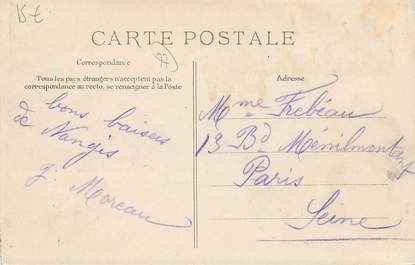 15€
77
CARTE POSTALE
Correspondance
Tous les pays étrangers n'acceptent pas la
correspondance au recto, se renseigner à la Poste
bons baisers
de Nangis
g. Moreau
Adresse
Mme Frebéau
13 Bd Ménilmontant
Paris
Seine